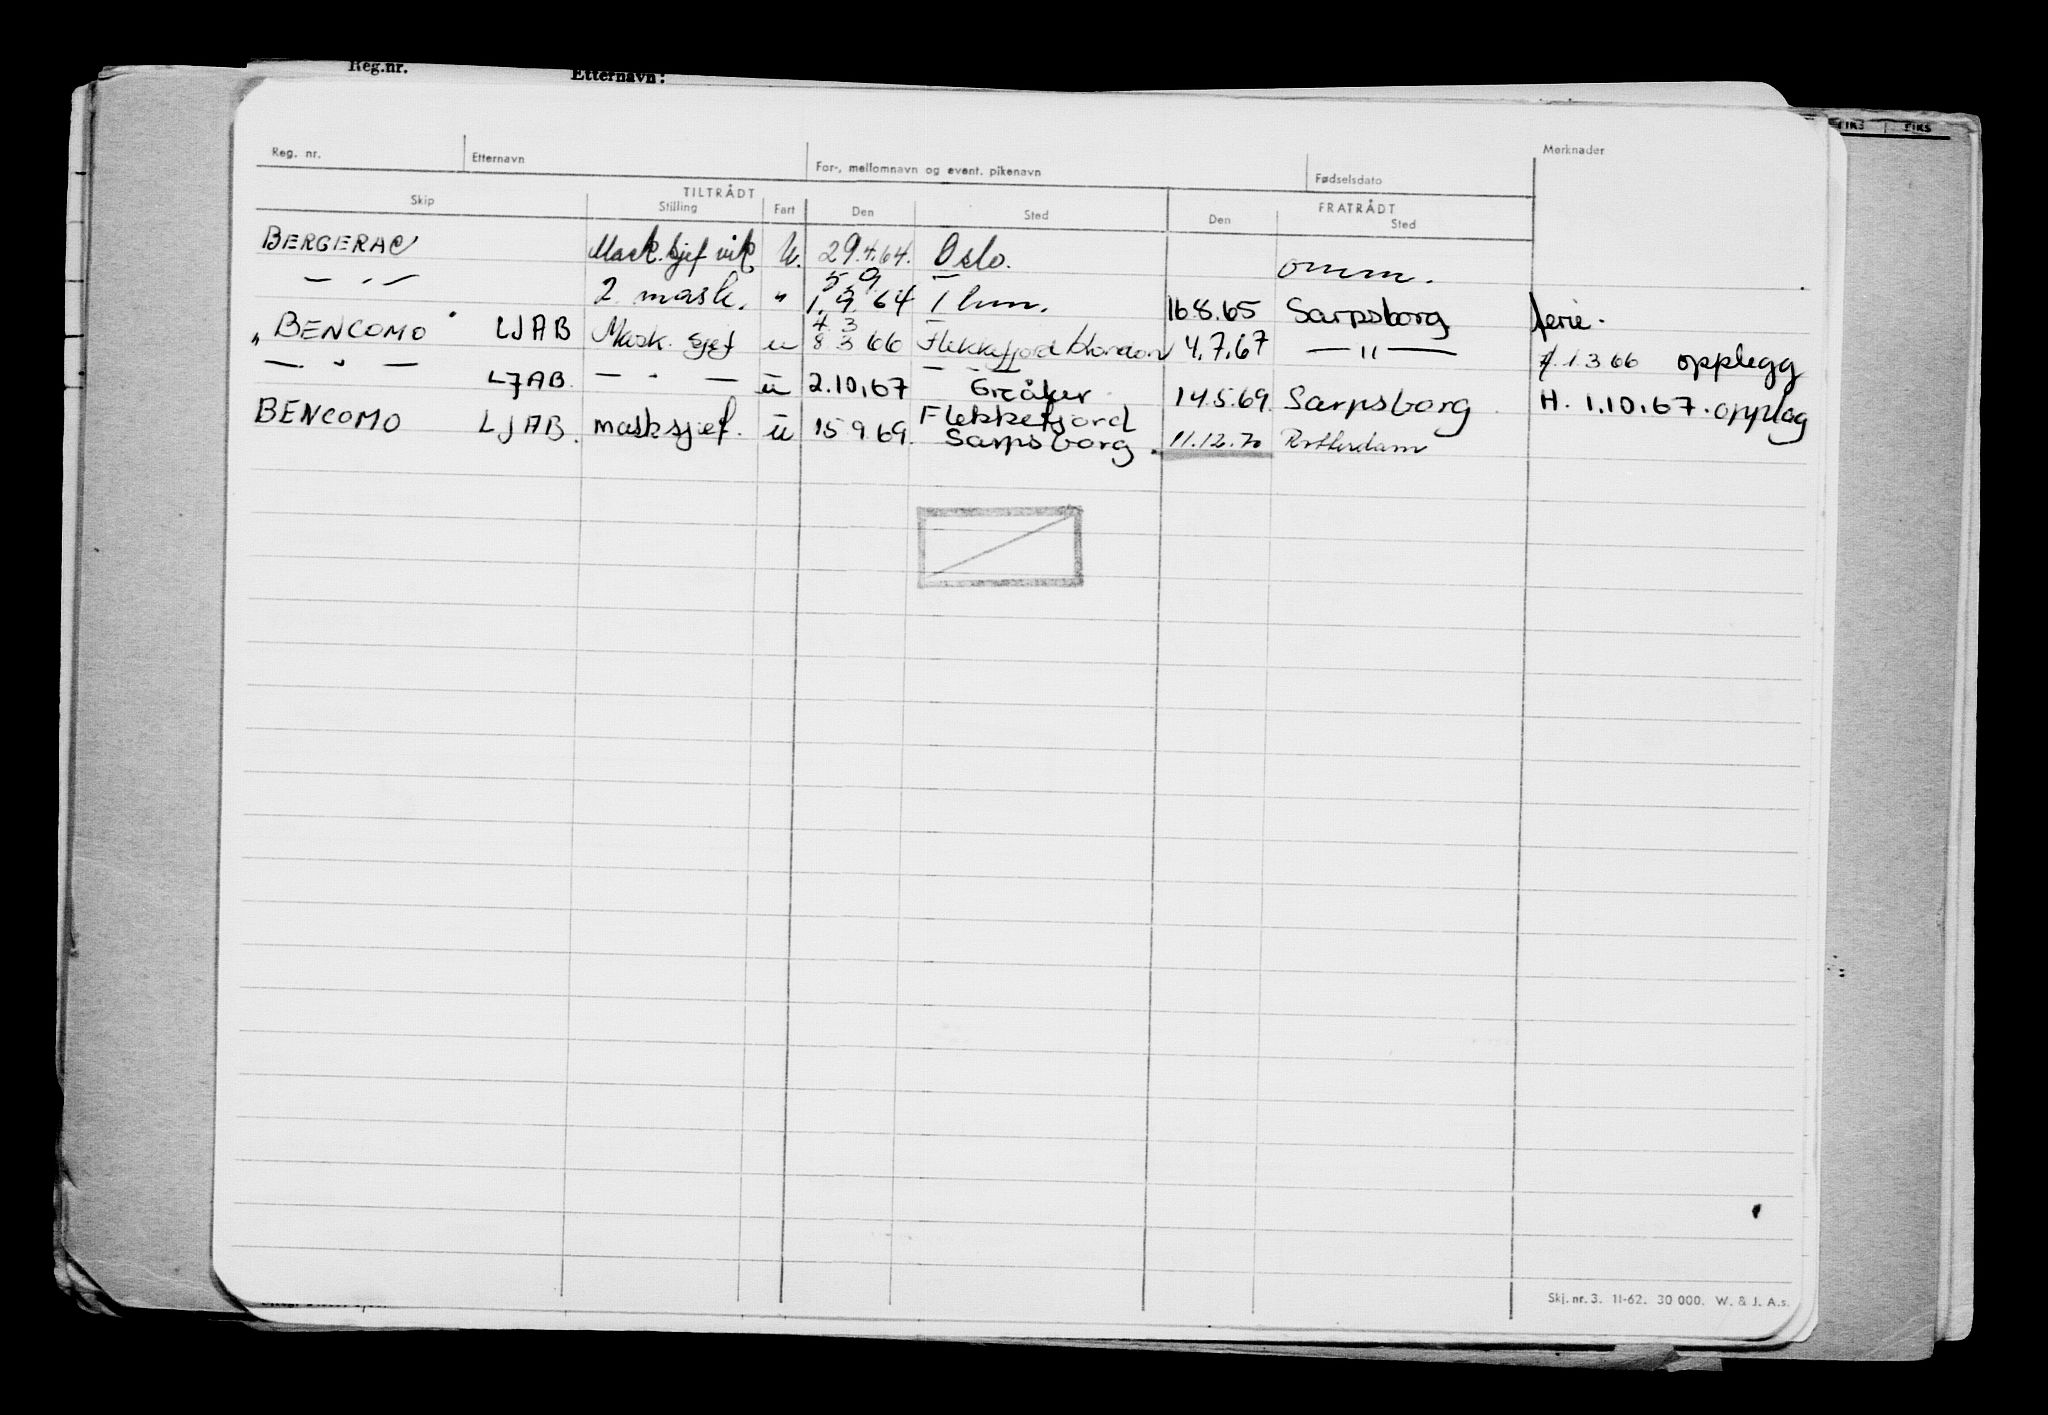 Reg.nr. Etternavn:
FIKS FIKS
Reg. nr. Etternavn For-, mellomnavn og event. pikenavn Fødselsdato Merknader
TILTRÅDT FRATRÅDT
Skip Stilling Fart Den Sted Den Sted
BERGERAC Mask.sjef vik U. 29.4.64. Oslo. omm.
— " — 2. mask. " 5 9 1.9.64 Thm. 16.8.65 Sarpsborg ferie.
" BENCOMO " LJAB Mask. sjef u 4 3 8 3 66 Flekkefjord 4.7.67 — " — 1 3 66 opplegg
— " — LJAB — " — u 2.10.67 Greåker 14.5.69. Sarpsborg H. 1.10.67. opplag
BENCOMO LJAB. masksjef. u 15 9 69. Flekkefjord Sarpsborg. 11.12.70 Rotterdam
Skj. nr. 3. 11-62. 30 000. W. & J. A.s.